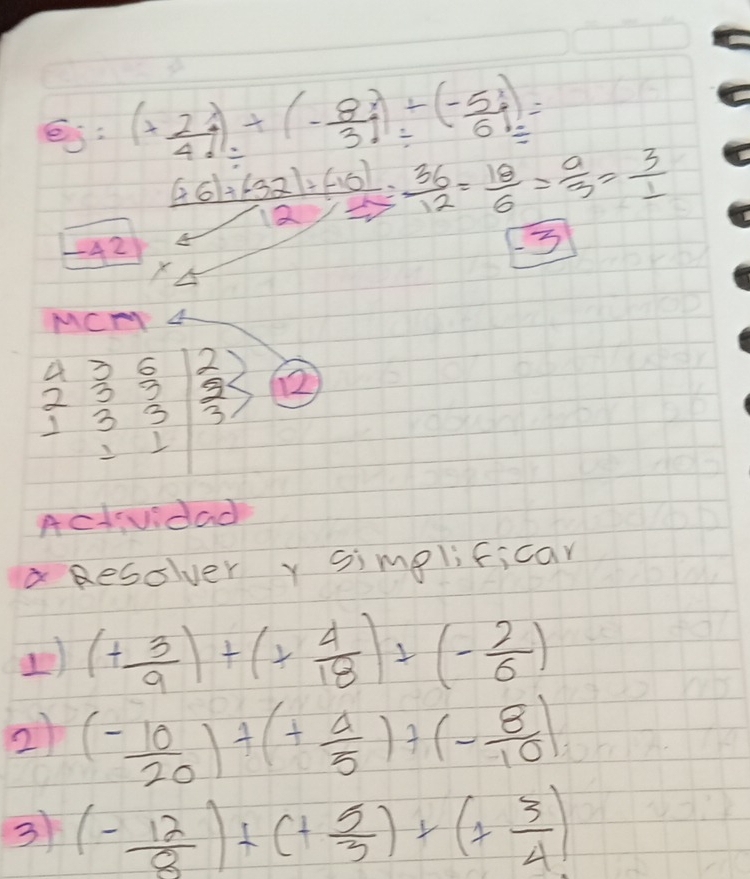 Ej: (+ 2/4) ÷ + (- 8/3) ÷ + (- 5/6) ÷ =
(+6)+(-32)+(-10)/12 ⇒ = -36/12 = 18/6 = 9/3 = 3/1
-42
-3
x
MCM
4 3 6 | 2
2 3 3 | 2
1 3 3 | 3
1 1
12
Actividad
α Resolver y simplificar
1) (+ 3/9) + (+ 4/18) + (- 2/6)
2) (- 10/20) + (+ 4/5) + (- 8/10)
3) (- 12/8) + (+ 5/3) + (+ 3/4)